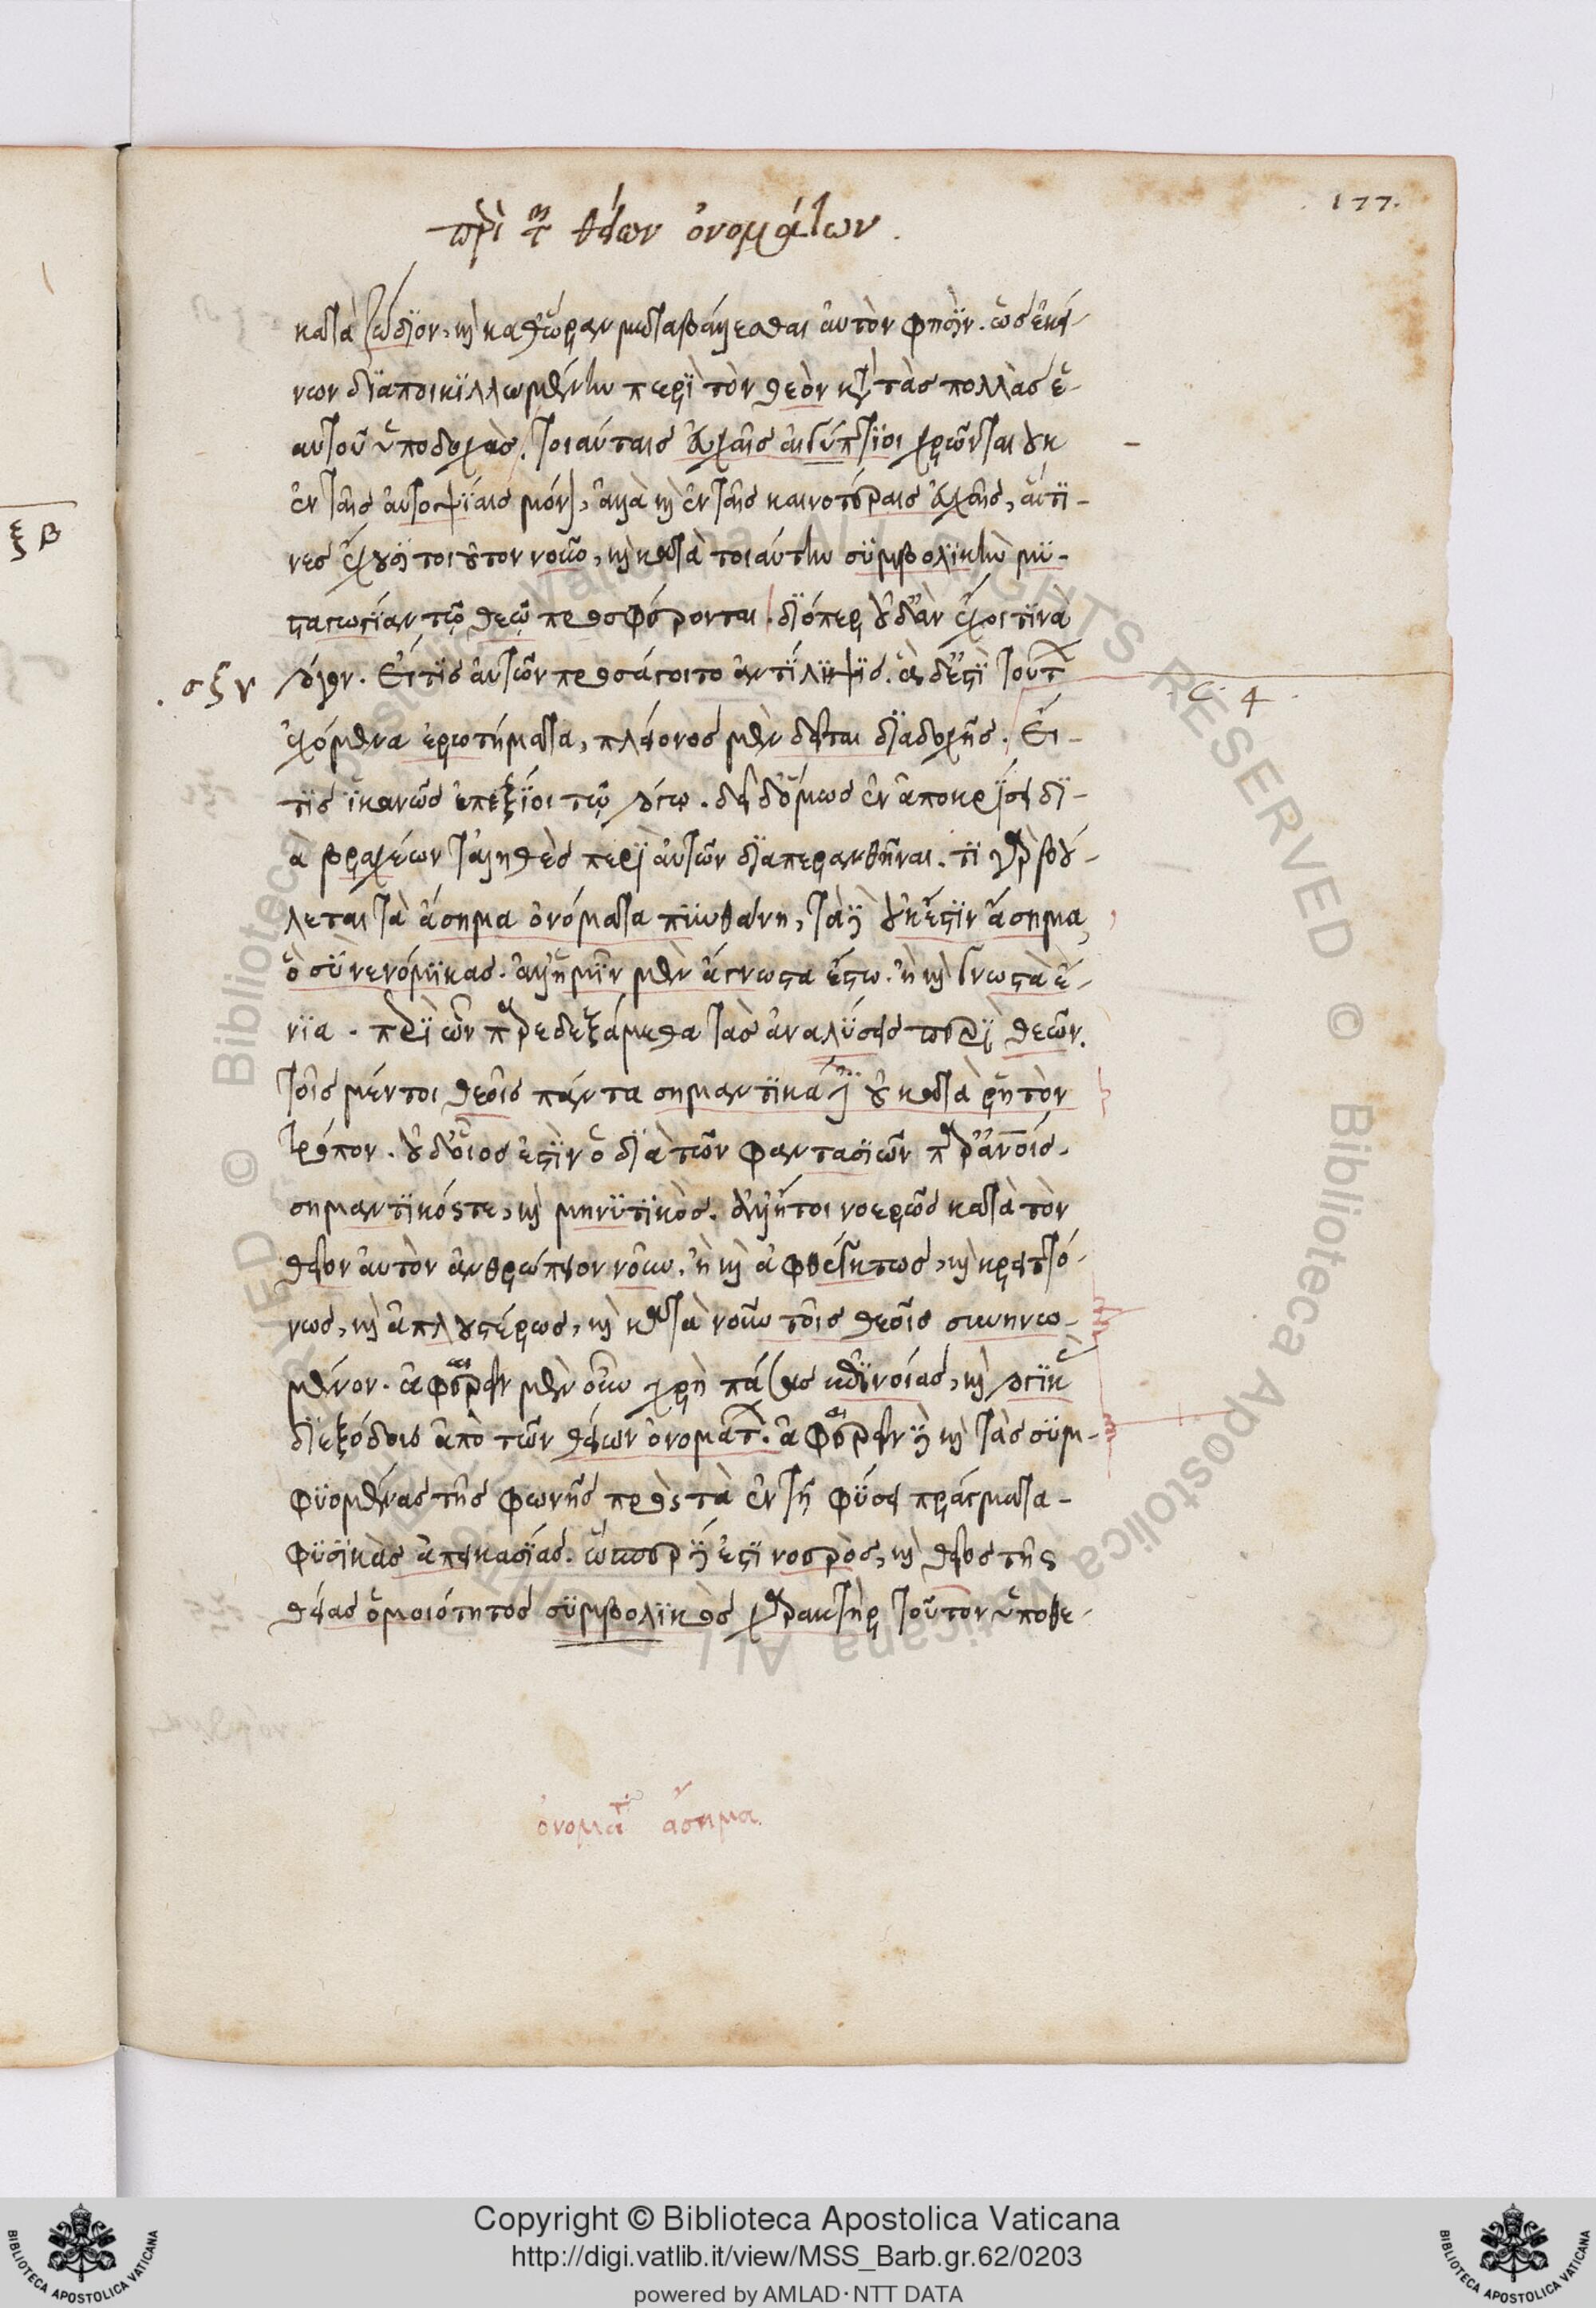 177.
περὶ τῶν θείων ὀνομάτων.
κατὰ ζώδιον, καὶ καθ' ὥραν μεταβάλλεσθαι αὐτὸν φησίν. ὡς ἐκεί-
νων διαποικιλλωμένων περὶ τὸν θεὸν κατὰ τὰς πολλὰς ἑ-
αυτοῦ ὑποδοχὰς. τοιαύταις εὐχαῖς αἰγύπτιοι χρῶνται οὐκ
ἐν ταῖς αὐτοψίαις μόνον, ἀλλὰ καὶ ἐν ταῖς κοινοτέραις εὐχαῖς, αἵτι-
νες ἔχουσι τοιοῦτον νοῦν, καὶ κατὰ τοιαύτην συμβολικὴν μυ-
σταγωγίαν τῷ θεῷ προσφέρονται. διόπερ οὐδ' ἂν ἔχοι τινὰ
σξγ
λόγον. Εἴ τις αὐτῶν προσάγοιτο ἀντίληψις. ἃ δ' ἐστὶ τούτων
C. 4.
ἐχόμενα ἐρωτήματα, πλείονος μὲν δεῖται διαδοχῆς. Εἴ-
τις ἱκανῶς ἐπεξίοι τῷ λόγῳ. δεῖ δ' ὅμως ἐν ἀποκρίσει δι-
ὰ βραχέων τἀληθὲς περὶ αὐτῶν διαπερανθῆναι. τί γὰρ βού-
λεται τὰ ἄσημα ὀνόματα πυνθάνῃ, τὰ δὲ οὐκ ἔστιν ἄσημα,
ὃ σὺ νενόμικας. ἀλλ' ἡμῖν μὲν ἄγνωστα ἔστω. ἢ καὶ γνωστὰ ἔ-
νια. περὶ ὧν παρεδεξάμεθα τὰς ἀναλύσεις παρὰ θεῶν.
τοῖς μέντοι θεοῖς πάντα σημαντικά ἐστι οὐ κατὰ ῥητὸν
τρόπον. οὐδ' οἷος ἐστὶν ὁ διὰ τῶν φαντασιῶν παρ' ἀνθρώποις.
σημαντικός τε, καὶ μηνυτικὸς. ἀλλ' ἤτοι νοερῶς κατὰ τὸν
θεῖον αὐτὸν ἀνθρώπειον νοῦν. ἢ καὶ ἀφθέγκτως, καὶ κρειττό-
νως, καὶ ἁπλουστέρως, καὶ κατὰ νοῦν τοῖς θεοῖς συνηνω-
μένον. ἀφαιρεῖν μὲν οὖν χρὴ πάσας ἐπινοίας, καὶ λογικὰς
διεξόδους ἀπὸ τῶν θείων ὀνομάτων. ἀφαιρεῖν δὲ καὶ τὰς συμ-
φυομένας τῆς φωνῆς πρὸς τὰ ἐν τῇ φύσει πράγματα
φυσικὰς ἀπεικασίας. ὥσπερ δέ ἐστι νοερὸς, καὶ θεῖος τῆς
θείας ὁμοιότητος συμβολικὸς χαρακτὴρ τοῦτον ὑποθε-
ὀνόματα ἄσημα
ξβ
Copyright © Biblioteca Apostolica Vaticana
http://digi.vatlib.it/view/MSS_Barb.gr.62/0203
powered by AMLAD·NTT DATA